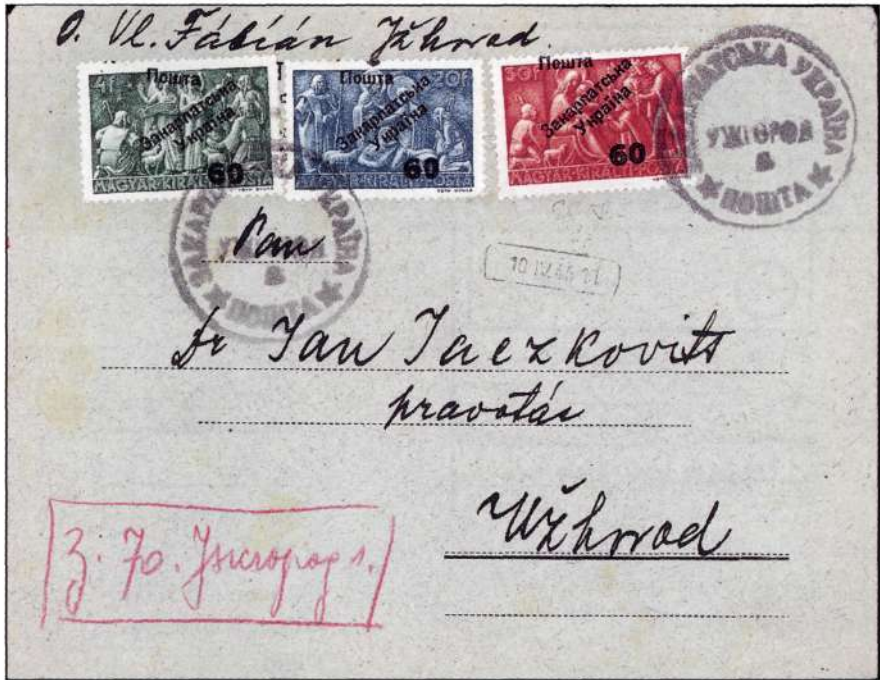 O. Vl. Fábián Užhorod
4F
Пошта
Закарпатська
Україна
60
MAGYAR KIRÁLYI POSTA
20F
Пошта
Закарпатська
Україна
60
MAGYAR KIRÁLYI POSTA
30F
Пошта
Закарпатська
Україна
60
MAGYAR KIRÁLYI POSTA
ЗАКАРПАТСЬКА УКРАЇНА
УЖГОРОД
ПОШТА
ЗАКАРПАТСЬКА УКРАЇНА
УЖГОРОД
ПОШТА
Pan
10 IV.45
Dr Jan Jaczkovits
pravotár
Užhorod
З. 70. Ужгород 1.